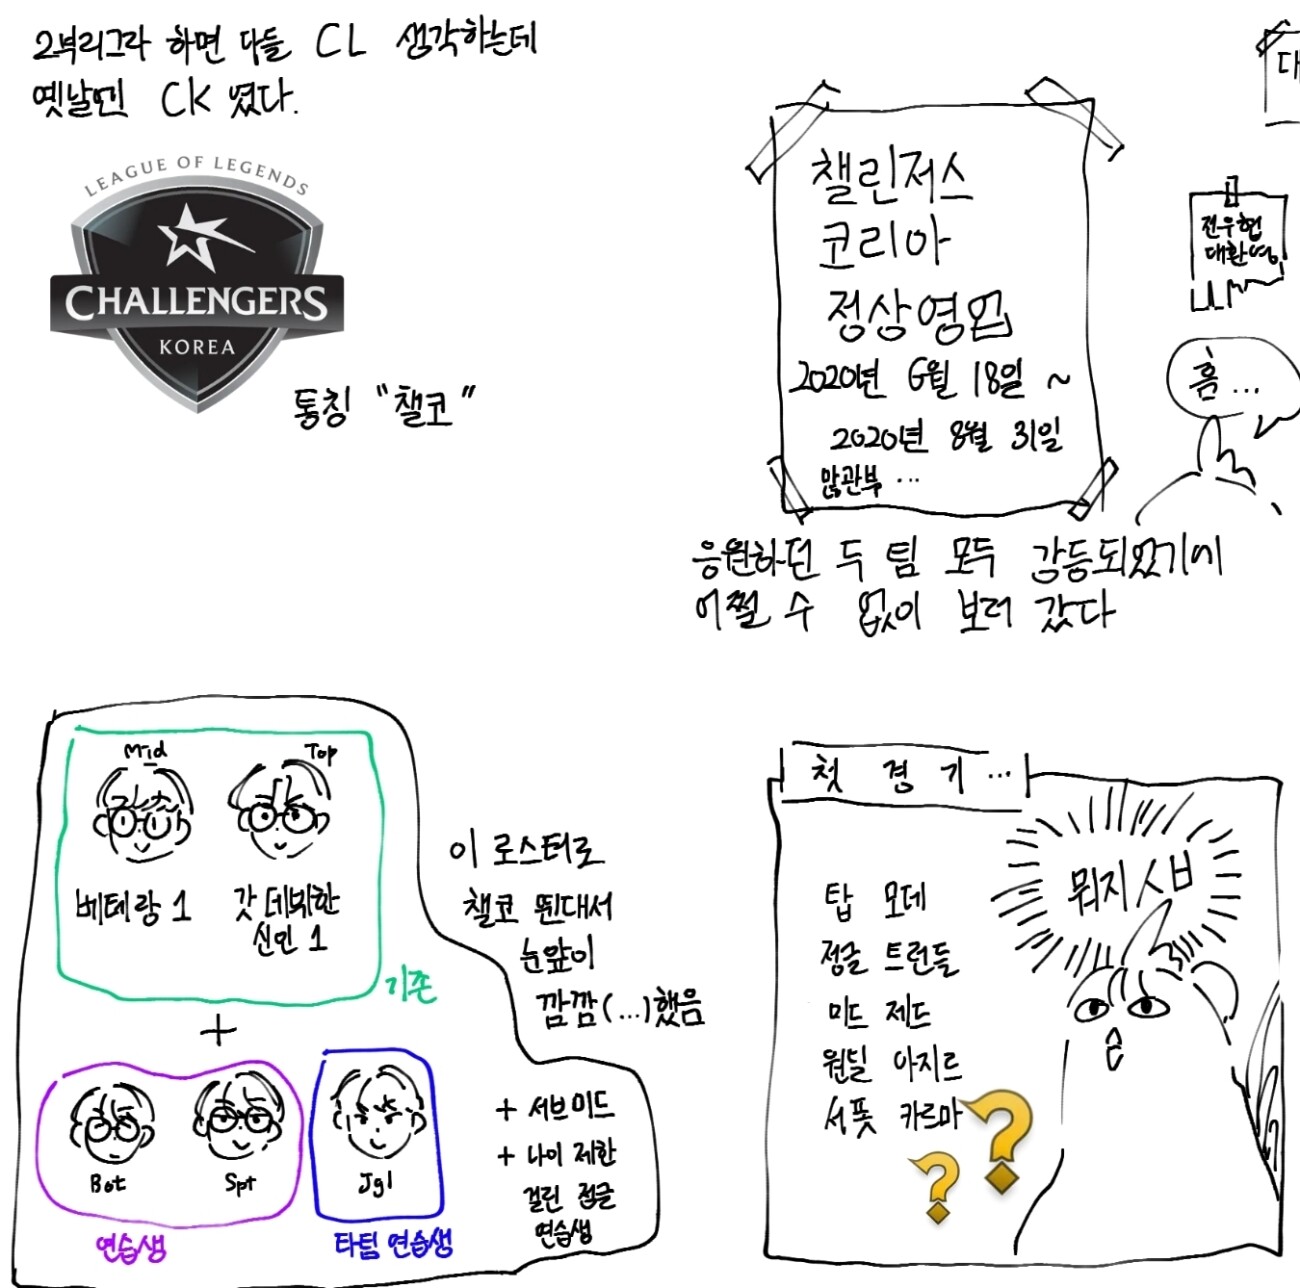 2부리그라 하면 다들 CL 생각하는데
옛날엔 CK 였다.
LEAGUE OF LEGENDS
CHALLENGERS
KOREA
통칭 "챌코"
챌린저스
코리아
정상영업
2020년 6월 18일 ~
2020년 8월 31일
많관부 ...
대
전우협
대환영
흠...
응원하던 두 팀 모두 강등되었기에
어쩔 수 없이 보러 갔다
Mid
Top
베테랑 1
갓 데뷔한
신인 1
기존
+
Bot
Spt
연습생
Jgl
타팀 연습생
이 로스터로
챌코 뛴대서
눈앞이
깜깜(...)했음
+ 서브미드
+ 나이 제한
걸린 정글
연습생
첫 경기...
탑 모데
정글 트런들
미드 제드
원딜 아지르
서폿 카르마
??
뭐지 시브